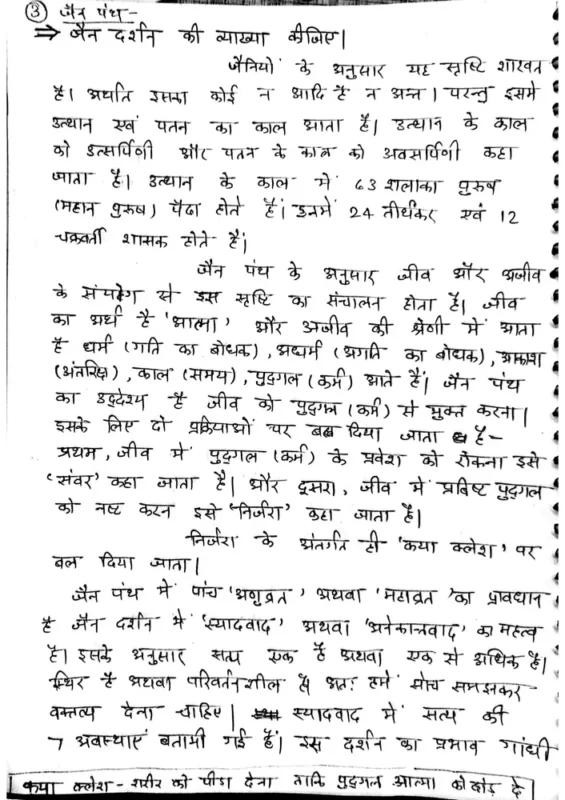 ③ जैन पंथ -
⇒ जैन दर्शन की व्याख्या कीजिए।
जैनियों के अनुसार यह सृष्टि शाश्वत
है। अर्थात इसका कोई न आदि है न अन्त। परन्तु इसमे
उत्थान एवं पतन का काल आता है। उत्थान के काल
को उत्सर्पिणी और पतन के काल को अवसर्पिणी कहा
जाता है। उत्थान के काल में 63 शलाका पुरुष
(महान पुरुष) पैदा होते हैं। इनमें 24 तीर्थंकर एवं 12
चक्रवर्ती शासक होते हैं।
जैन पंथ के अनुसार जीव और अजीव
के संयोग से इस सृष्टि का संचालन होता है। जीव
का अर्थ है 'आत्मा' और अजीव की श्रेणी में आता
है धर्म (गति का बोधक), अधर्म (अगति का बोधक), आकाश
(अंतरिक्ष), काल (समय), पुद्गल (कर्म) आते हैं। जैन पंथ
का उद्देश्य है जीव को पुद्गल (कर्म) से मुक्त करना।
इसके लिए दो प्रक्रियाओं पर बल दिया जाता है -
प्रथम, जीव में पुद्गल (कर्म) के प्रवेश को रोकना इसे
'संवर' कहा जाता है। और दूसरा, जीव में प्रविष्ट पुद्गल
को नष्ट करन इसे 'निर्जरा' कहा जाता है।
निर्जरा के अंतर्गत ही 'कया क्लेश' पर
बल दिया जाता।
जैन पंथ में पांच 'अणुव्रत' अथवा 'महाव्रत' का प्रावधान
है जैन दर्शन में 'स्यादवाद' अथवा 'अनेकान्तवाद' का महत्व
है। इसके अनुसार सत्य एक है अथवा एक से अधिक है।
स्थिर है अथवा परिवर्तनशील है अतः हमे सोच समझकर
वक्तव्य देना चाहिए। स्यादवाद में सत्य की
7 अवस्थाएं बतायी गई हैं। इस दर्शन का प्रभाव गांधी
कया क्लेश - शरीर को पीडा देना ताकि पुद्गल आत्मा को छोड दे।